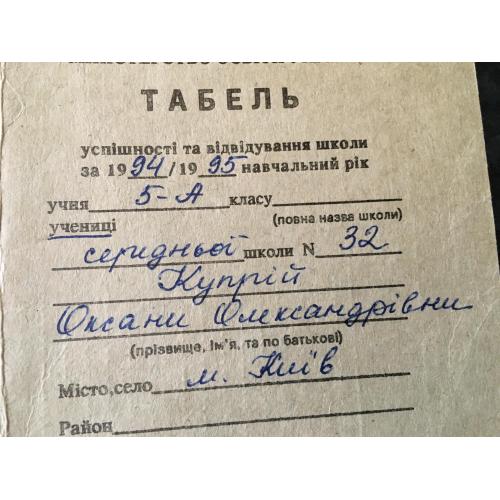 ТАБЕЛЬ
успішності та відвідування школи
за 1994/1995 навчальний рік
учня 5-А класу
учениці (повна назва школи)
середньої школи N 32
Купрій
Оксани Олександрівни
(прізвище, ім'я, та по батькові)
Місто, село м. Київ
Район